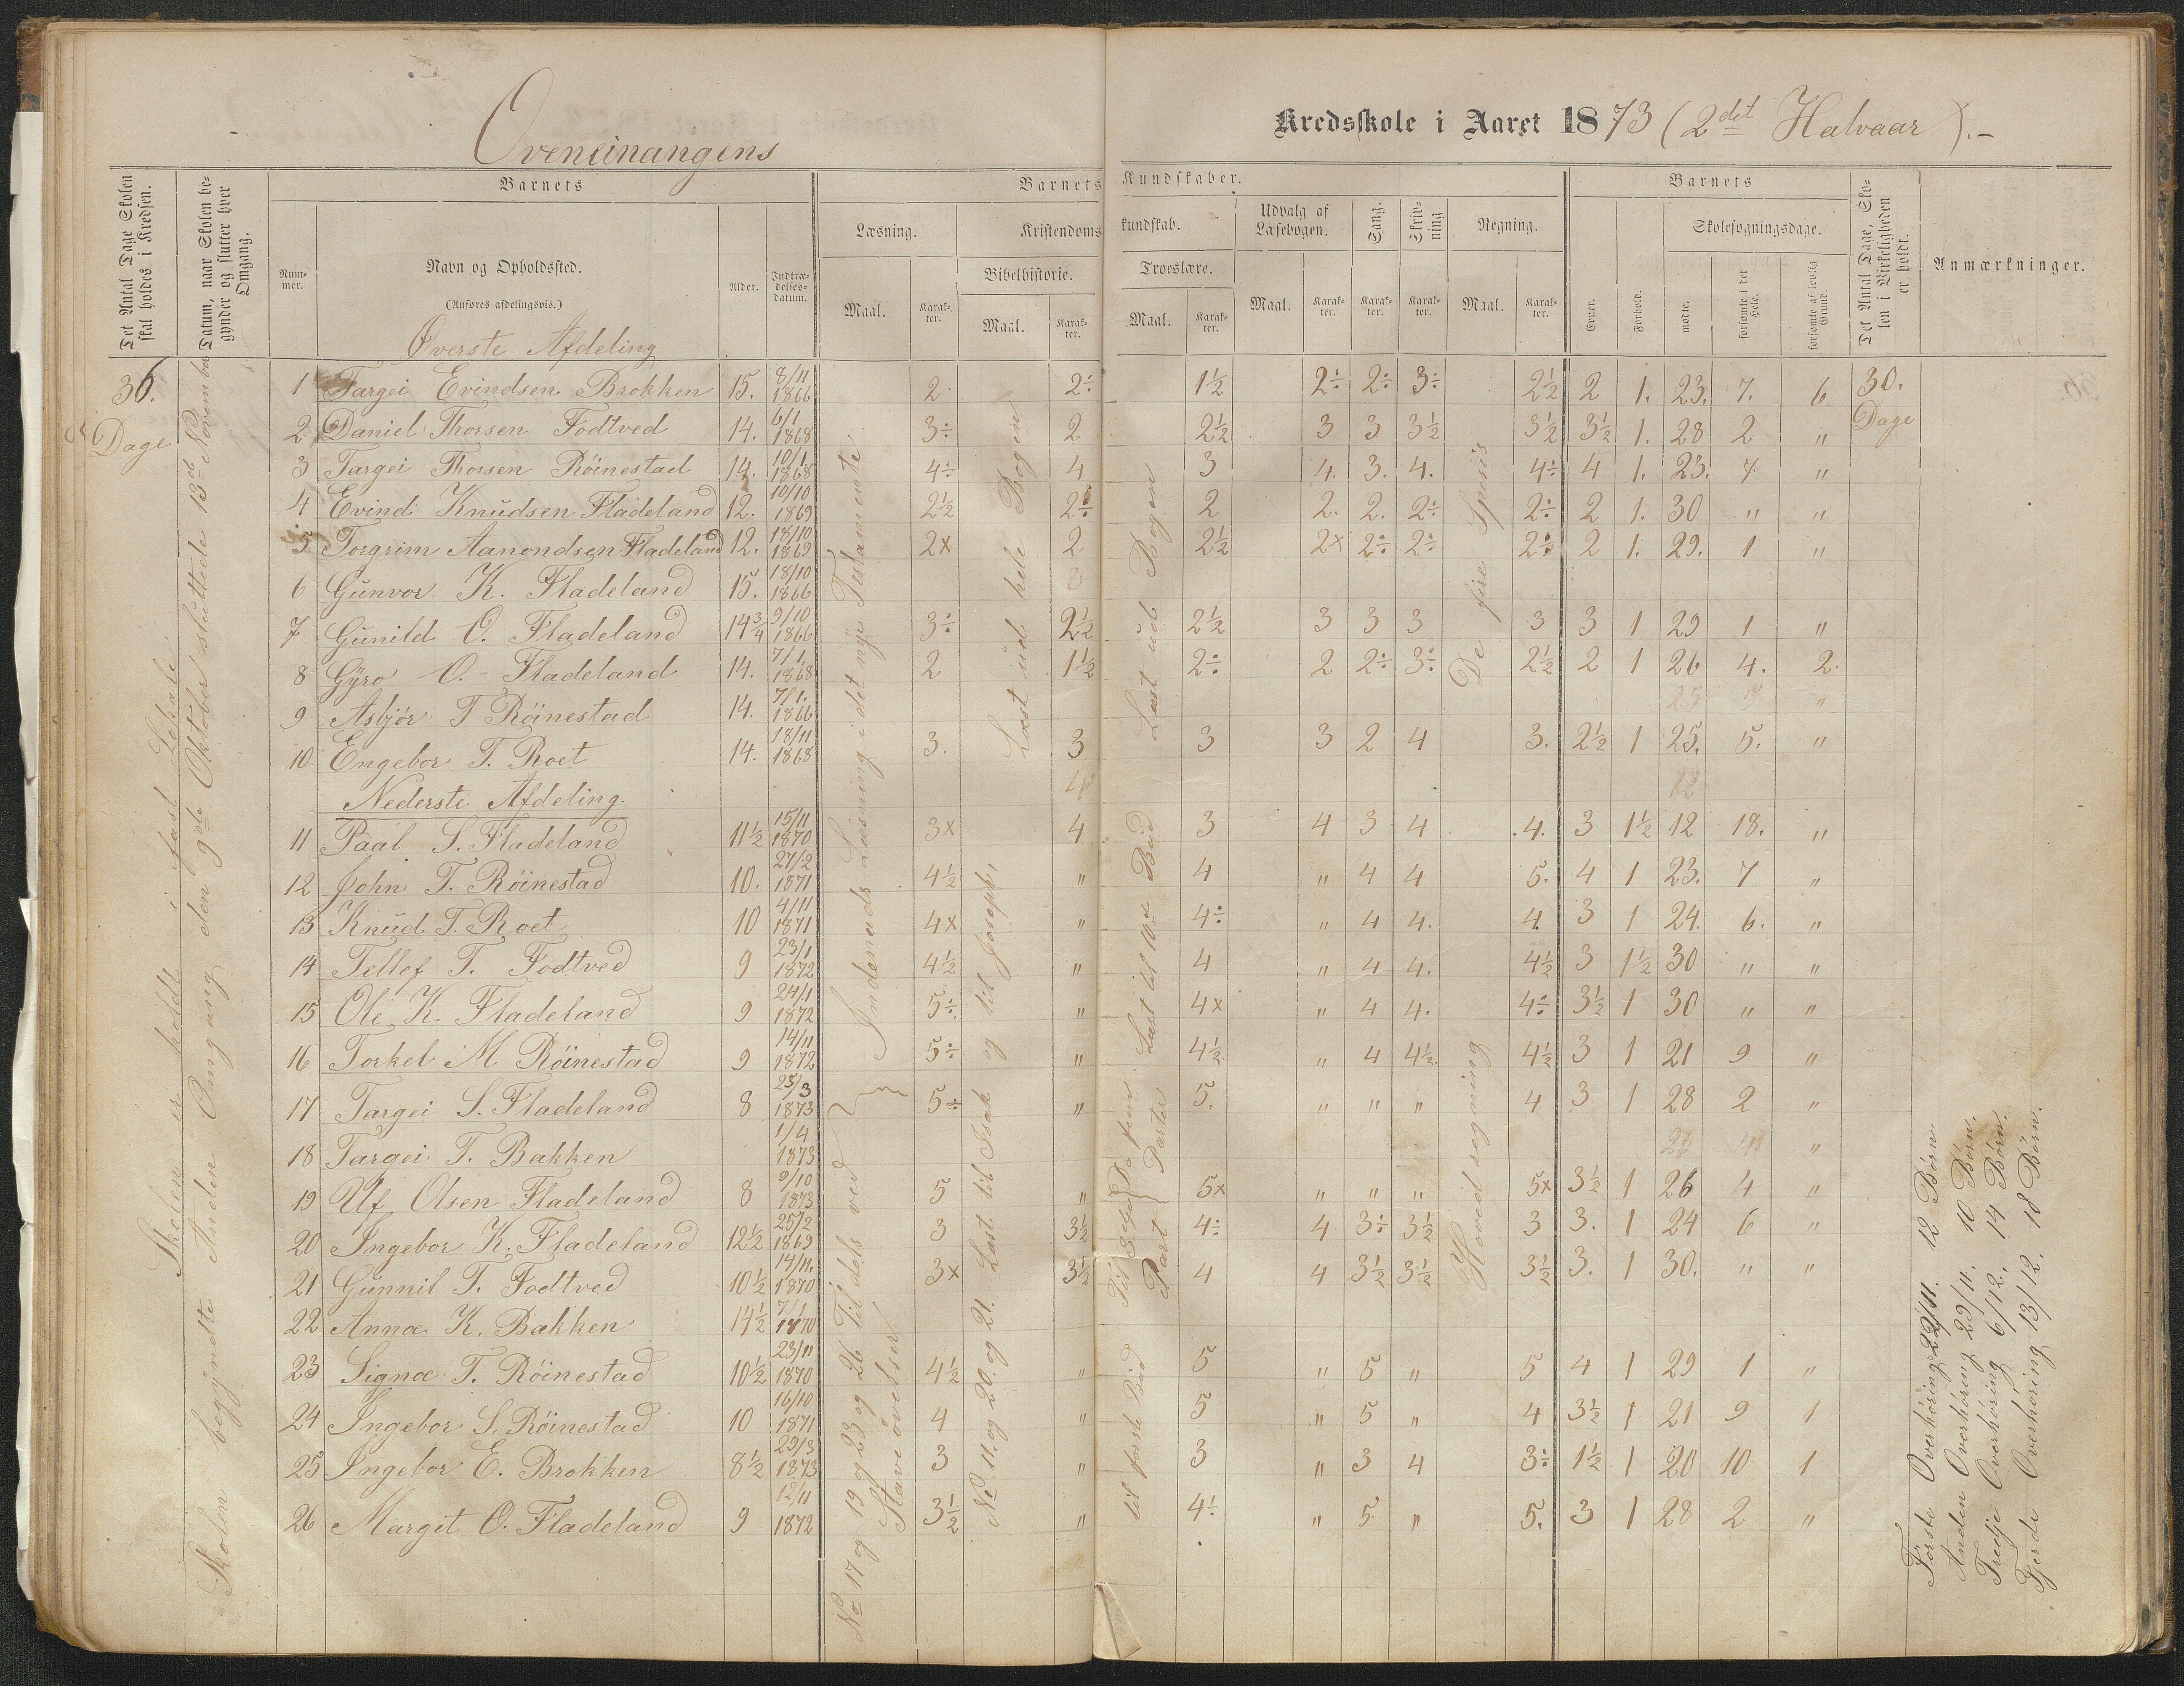 Oveneinangens
Kredsskole i Aaret 1873 (2det Halvaar).-
Det Antal Dage Skolen skal holdes i Kredsen.
Datum, naar Skolen begynder og slutter hver Omgang.
Barnets
Barnets Kundskaber.
Barnets
Det Antal Dage, Skolen i Virkeligheden er holdt.
Anmærkninger.
Nummer.
Navn og Opholdssted.
(Anføres afdelingsvis.)
Alder.
Indtrædelsesdatum.
Læsning.
Kristendomskundskab.
Udvalg af Læsebogen.
Sang.
Skrivning
Regning.
Skolesøgningsdage.
Bibelhistorie.
Troeslære.
Maal.
Karakter.
Maal.
Karakter.
Maal.
Karakter.
Maal.
Karakter.
Karakter.
Karakter.
Maal.
Karakter.
Evner.
Forhold.
mødte.
forsømte i det Hele.
forsømte af lovlig Grund.
Øverste Afdeling
36. Dage
30. Dage
1 Targei Evindsen Brokken 15. 8/11 1866 2 2÷ 1½ 2÷ 2÷ 3÷ 2½ 2 1. 23. 7. 6
2 Daniel Thorsen Fodtved 14. 6/1 1868 3÷ 2 2½ 3 3 3½ 3½ 3½ 1. 28 2 "
3 Targei Thorsen Röinestad 14. 10/1 1868 4÷ 4 3 4. 3. 4. 4÷ 4 1. 23. 7 "
4 Evind Knudsen Fladeland 12. 10/10 1869 2½ 2÷ 2 2. 2. 2÷ 2÷ 2 1. 30 " "
5 Torgrim Aanondsen Fladeland 12. 18/10 1869 2x 2 2½ 2x 2÷ 2÷ 2÷ 2 1. 29. 1 "
6 Gunvor K. Fladeland 15. 18/10 1866
7 Gunild O. Fladeland 14¾ 9/10 1866 3÷ 2½ 2½ 3 3 3 3 3 1 29 1 "
8 Gyro O. Fladeland 14. 7/1 1868 2 1½ 2÷ 2 2÷ 3÷ 2½ 2 1 26 4. 2.
9 Asbjör T Röinestad 14. 7/1. 1866
10 Engebor T. Roet 14. 18/11 1868 3. 3 3 3 2 4 3. 2½ 1 25. 5. "
Nederste Afdeling.
11 Paal S. Fladeland 11½ 15/11 1870 3x 4 3 4 3 4 4. 3 1½ 12 18. "
12 John T. Röinestad 10. 27/2 1871 4½ " 4 " 4 4 5. 4 1 23. 7 "
13 Knud T. Roet 10 4/11 1871 4x " 4÷ " 4 4. 4 3 1 24. 6. "
14 Tellef T. Fodtved 9 23/1 1872 4½ " 4 " 4 4. 4½ 3 1½ 30 " "
15 Ole K. Fladeland 9 24/1 1872 5÷ " 4x " 4 4. 4÷ 3½ 1 30 " "
16 Torkel M Röinestad 9 14/11 1872 5÷ " 4½ " 4 4½ 4½ 3 1 21 9 "
17 Targei S. Fladeland 8 25/3 1873 5÷ " 5. " " " 4 3 1 28 2 "
18 Targei T. Bakken 1/4 1873
19 Ulf Olsen Fladeland 8 9/10 1873 5 " 5x " " " 5x 3½ 1 26 4 "
20 Ingebor K. Fladeland 12½ 25/2 1869 3 3½ 4÷ 4 3÷ 3½ 3 3. 1 24 6 "
21 Gunnil T. Fodtved 10½ 14/11. 1870 3x 3½ 4 4 3½ 3½ 3½ 3. 1 30. " "
22 Annæ K. Bakken 14½ 7/1 1870
23 Signæ T. Röinestad 10½ 23/11 1870 4½ " 5 " 5 " 5 4 1 29 1 "
24 Ingebor S. Röinestad 10 16/10 1871 4 " 5 " 5 " 4 3½ 1 21 9 1
25 Ingebor E. Brokken 8½ 29/3 1873 3 " 3 " 3 4 3÷ 1½ 1 20 10 1
26 Margit O. Fladeland 9 12/11 1872 3½ " 4÷ " 5 " 5. 3 1 28 2 "
Skolen er holdt i fast Lokale.
Skolen begyndte Anden Omgang den 9de Oktober sluttede 13de November
Indenads Læsning i det nye Testamente
No 17 og 19 og 23 og 26 Tildels ved Staveövelser
Læst ud hele Bogen
No 11. og 20. og 21. Læst til Isak og til Joseph,
Læst ud Bogen
Læst til 10de Bud
Til 3die Part
De fem Parter
til förste Bud
De fire Speciis
Hovedregning
Förste Overhöring 22/11. 12 Börn.
Anden Overhöring 29/11. 10 Börn.
Tredje Overhöring 6/12. 14 Börn.
Fjerde Overhöring 13/12. 18 Börn.